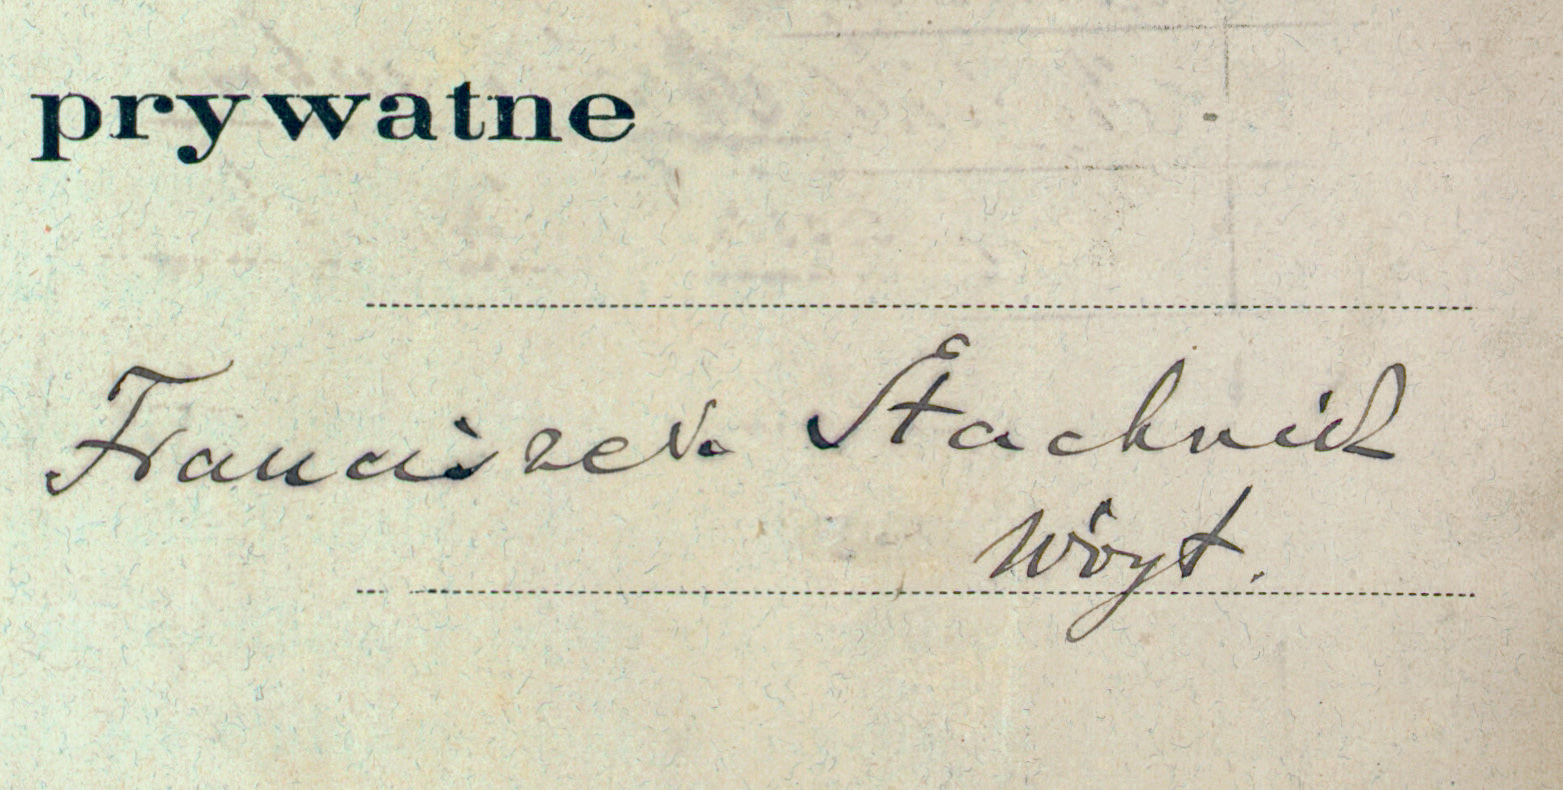 prywatne
Franciszek Stachnik
Wóyt.